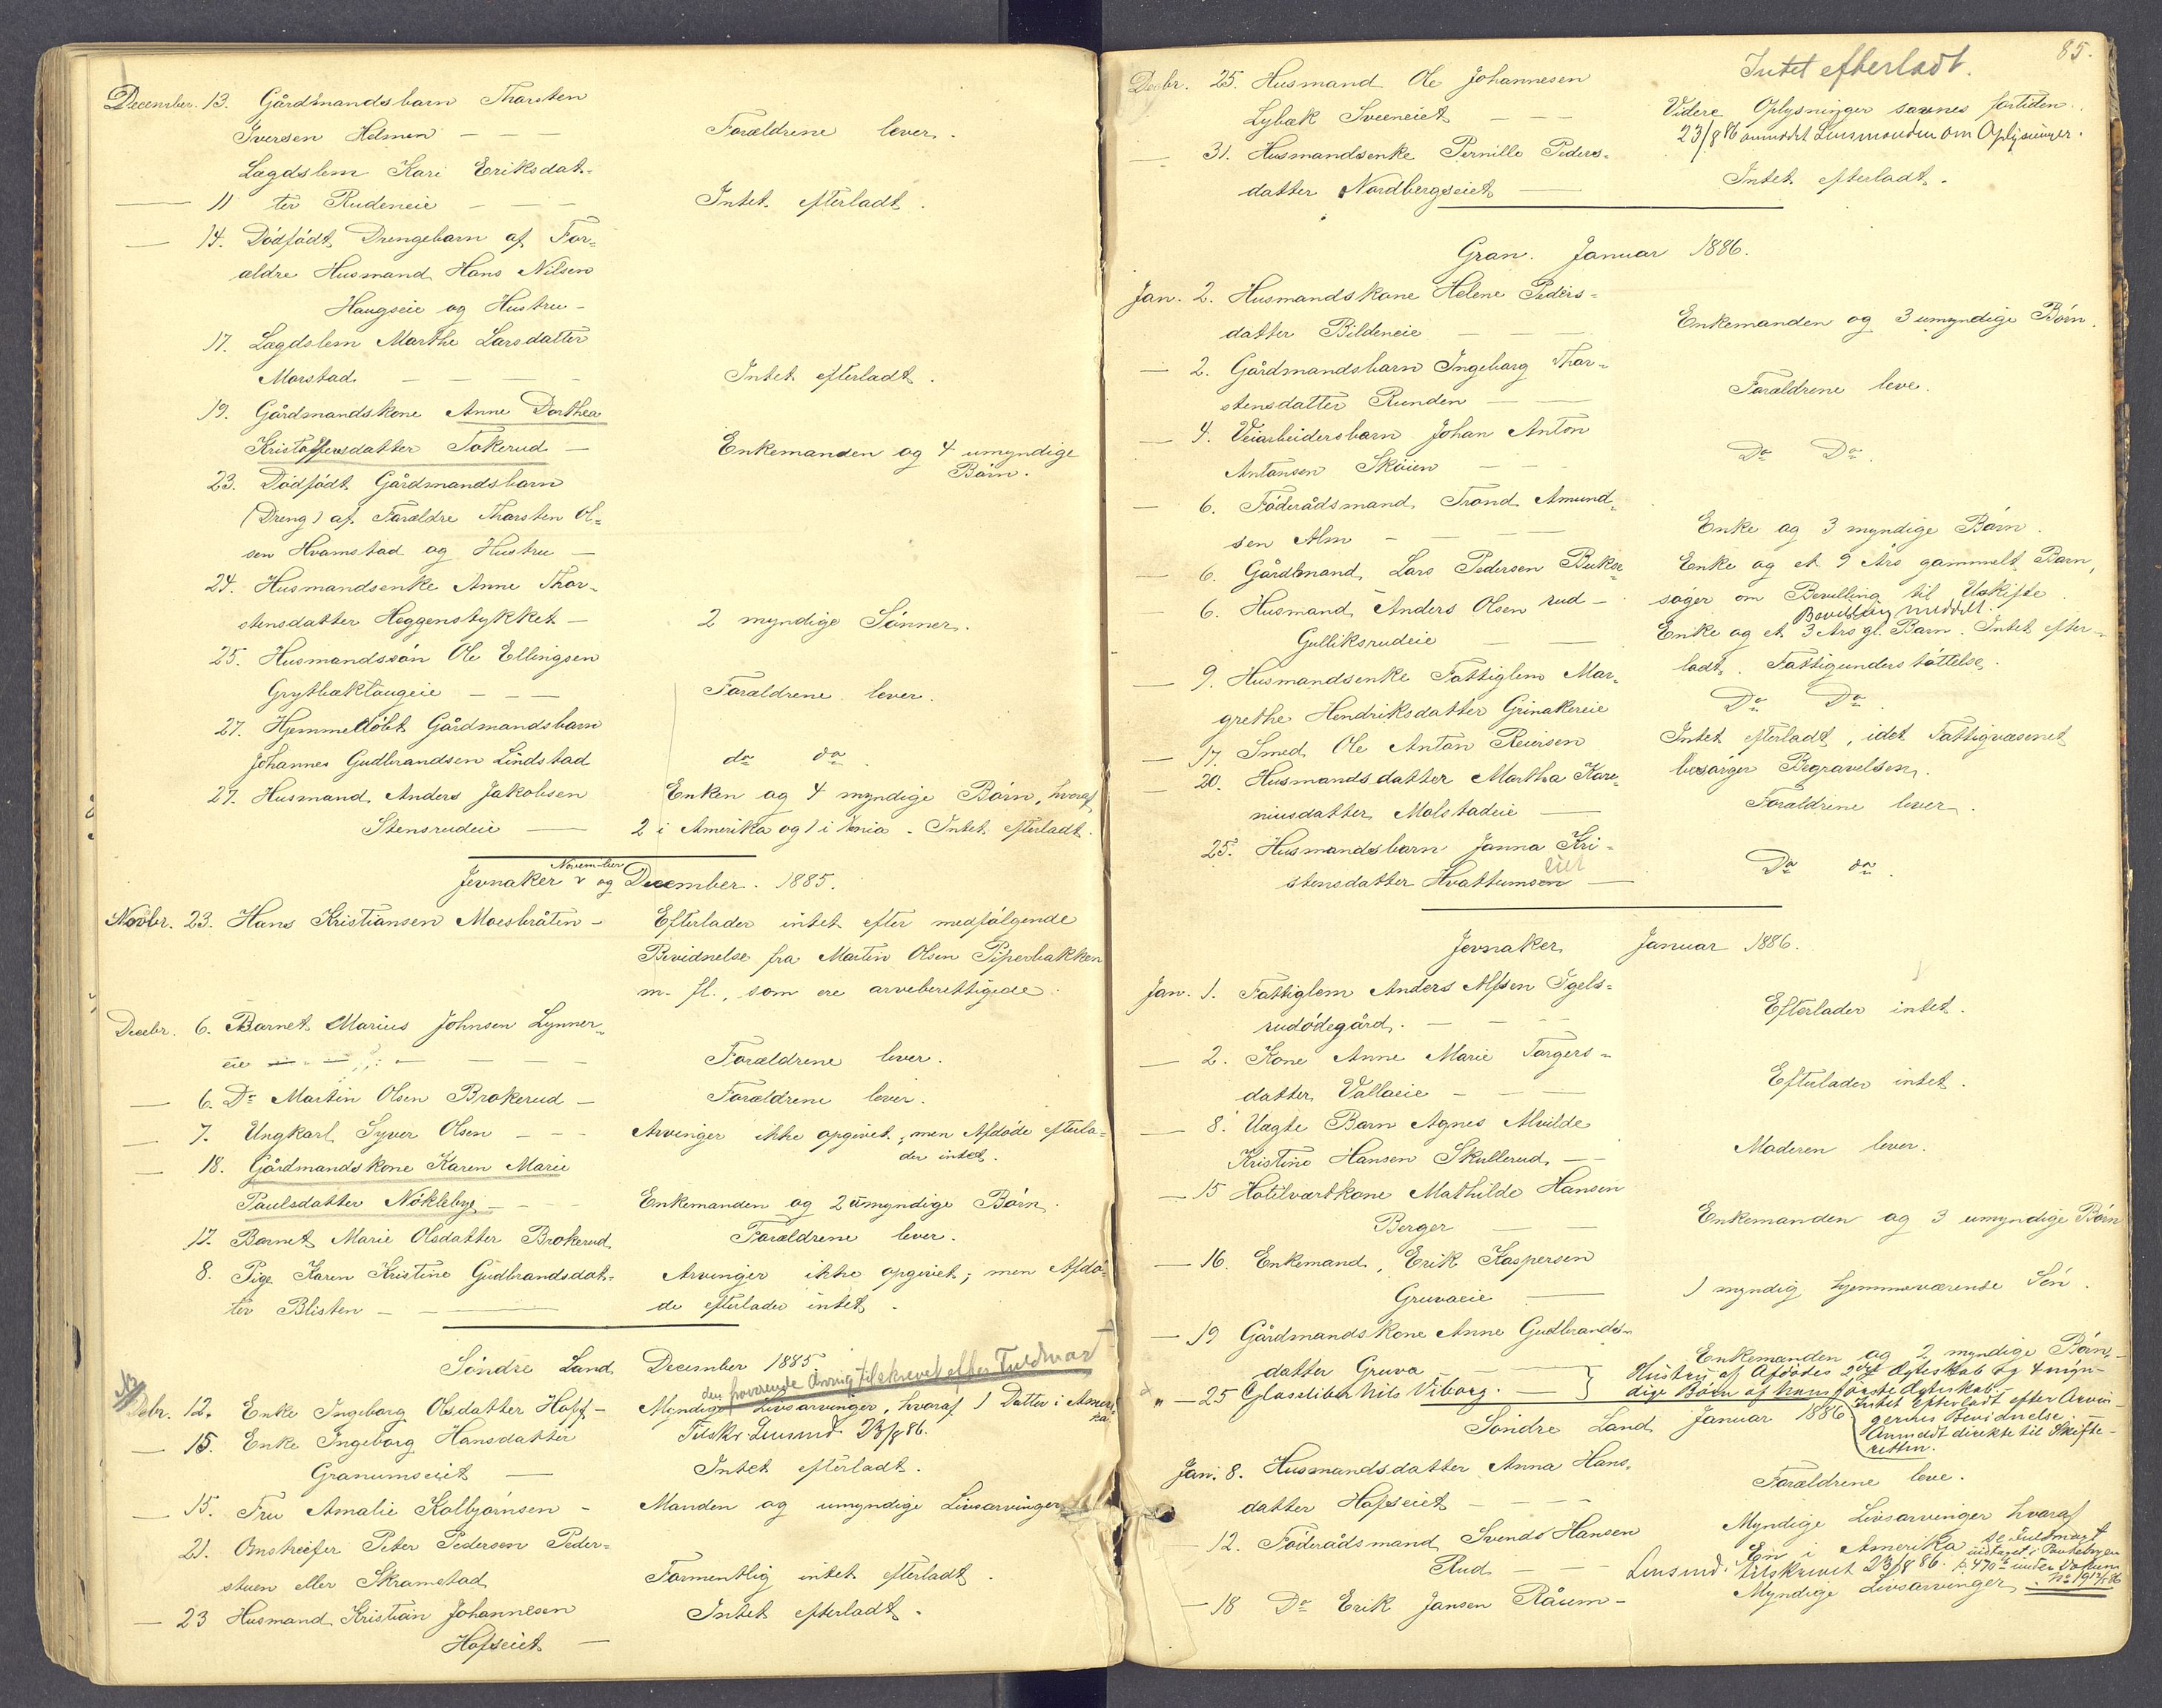 December. 13. Gårdmandsbarn Thorsten
Iversen Helmen — — — Forældrene lever.
Lægdslem Kari Eriksdat-
— 11 ter Rudeneie — — — Intet efterladt.
— 14. Dødfødt Drengebarn af For-
ældre Husmand Hans Nilsen
Haugseie og Hustru —
17. Lægdslem Marthe Larsdatter
Morstad — — — — Intet efterladt.
19. Gårdmandskone Anne Dorthea
Kristoffersdatter Tokerud — Enkemanden og 4 umyndige
Børn.
23. Dødfødt Gårdmandsbarn
(Dreng) af Forældre Thorsten Ol-
sen Hvamstad og Hustru —
24. Husmandsenke Anne Thor-
stensdatter Heggenstykket — 2 myndige Sønner.
25. Husmandssøn Ole Ellingsen
Grytbæktaugeie — — — Forældrene lever.
27. Hjemmedøbt Gårdmandsbarn
Johannes Gudbrandsen Lindstad do do.
27. Husmand Anders Jakobsen Enken og 4 myndige Børn, hvoraf
Stensrudeie — 2 i Amerika og 1 i Xania. Intet efterladt.
November
Jevnaker v og December. 1885.
Novbr. 23. Hans Kristiansen Moesbråten — Efterlader intet efter medfølgende
Bevidnelse fra Martin Olsen Piperbakken
m. fl., som ere arveberettigede.
Decbr. 6. Barnet Marius Johnsen Lynner-
eie — — — Forældrene lever.
— 6. Do Martin Olsen Brokerud — Forældrene lever.
— 7. Ungkarl Syver Olsen — — Arvinger ikke opgivet, men Afdøde efterla-
der intet.
— 18. Gårdmandskone Karen Marie
Paulsdatter Nøklebye — — — Enkemanden og 2 umyndige Børn.
17. Barnet Marie Olsdatter Brokerud Forældrene lever.
8. Pige Karen Kristine Gudbrandsdat- Arvinger ikke opgivet; men Afdø-
ter Blisten — — de efterlader intet.
Søndre Land December 1885.
den fraværende Arving tilskrevet efter Fuldmagt
Dcbr. 12. Enke Ingeborg Olsdatter Hoff — Myndige Livsarvinger, hvoraf 1 Datter i Ameri-
ka.
— 15. Enke Ingeborg Hansdatter Tilskr. Lensmd. 23/8 86.
Granumseiet — Intet efterladt.
— 15. Fru Amalie Kolbjørnsen — Manden og umyndige Livsarvinger
21. Omstreifer Peter Pedersen Peder-
stuen eller Skramstad Formentlig intet efterladt.
— 23 Husmand Kristian Johannesen Intet efterladt.
Hofseiet —
85.
Intet efterladt.
Decbr. 25. Husmand Ole Johannesen
Lybæk Sveeneiet — — — Videre Oplysninger savnes fortiden.
23/8 86 anmodet Lensmanden om Oplysninger.
— 31. Husmandsenke Pernille Peders-
datter Nordbergseiet — Intet efterladt.
Gran. Januar 1886.
Jan. 2. Husmandskone Helene Peders-
datter Bildeneie — — — Enkemanden og 3 umyndige Børn.
— 2. Gårdmandsbarn Ingeborg Thor-
stensdatter Runden — — Forældrene leve.
— 4. Veiarbeidersbarn Johan Anton
Antonsen Skøien — — Do Do.
— 6. Føderådsmand Trond Amund-
sen Alm — — — — Enke og 3 myndige Børn.
— 6. Gårdmand Lars Pedersen Bukse- Enke og et 9 Års gammelt Barn,
— 6. Husmand Anders Olsen rud — søger om Bevilling til Uskifte.
Bevilling meddelt.
Gulliksrudeie — — Enke og et 3 Års gl. Barn. Intet efter-
— 9. Husmandsenke Fattiglem Mar- ladt. Fattigunderstøttelse.
grethe Hendriksdatter Grinakereie Do Do.
— 17. Smed Ole Anton Reiersen Intet efterladt, idet Fattigvæsenet
— 20. Husmandsdatter Martha Kare- besørger Begravelsen.
niusdatter Molstadeie — Forældrene lever.
25. Husmandsbarn Janna Kri-
eiet
stensdatter Hvattumsen — Do do.
Jevnaker Januar 1886.
Jan. 1. Fattiglem Anders Alfsen Igels-
rudødegård. — — — Efterlader intet.
— 2. Kone Anne Marie Torgers-
datter Vallaeie — — — Efterlader intet.
— 8. Uægte Barn Agnes Alvilde
Kristine Hansen Skullerud — — Moderen lever.
— 15 Hotelværtkone Mathilde Hansen
Berger — — Enkemanden og 3 umyndige Børn
— 16. Enkemand, Erik Kaspersen
Gruvaeie — 1 myndig hjemmeværende Søn.
— 19 Gårdmandskone Anne Gudbrands-
datter Gruva — Enkemanden og 2 myndige Børn.
" — 25 Glassliber Nils Viborg. — } Hustru af Afdødes 2det Ægteskab og 4 myn-
dige Børn af hans første Ægteskab.
Intet efterladt efter Arvin-
gernes Bevidnelse.
Anmeldt direkte til Skifte-
retten.
Søndre Land Januar 1886
Jan. 8. Husmandsdatter Anna Hans-
datter Hofseiet — — — Forældrene leve.
— 12. Føderådsmand Svend Hansen Myndige Livsarvinger hvoraf
Rud — — Én i Amerika se Fuldmagt
indtaget i Pantebogen
Lensmd. tilskrevet 23/8 86. p. 470
— 18 Do Erik Jansen Råum — Myndige Livsarvinger